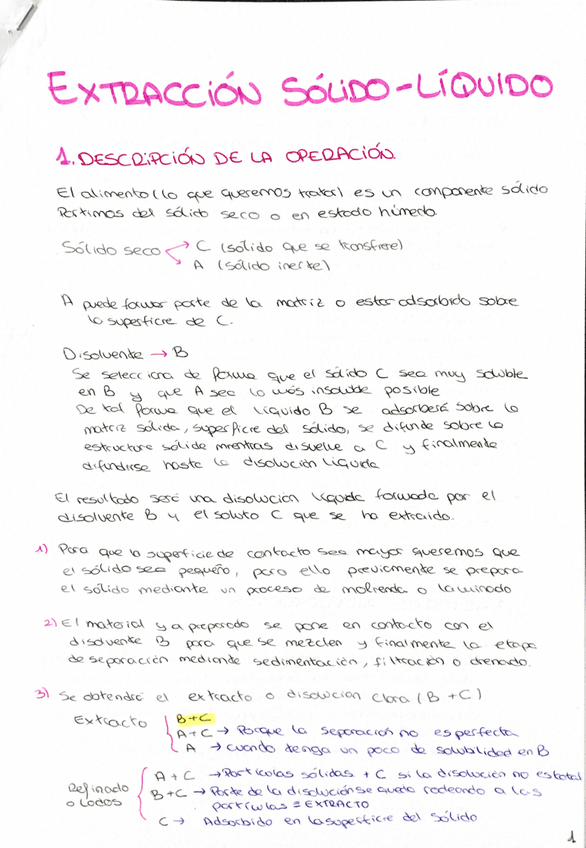 EXTRACCIÓN SÓLIDO-LÍQUIDO
1. DESCRIPCIÓN DE LA OPERACIÓN.
El alimento (lo que queremos tratar) es un componente sólido
Partimos del sólido seco o en estado húmedo.
Sólido seco → C (sólido que se transfiere)
→ A (sólido inerte)
A puede formar parte de la matriz o estar adsorbido sobre
la superficie de C.
Disolvente → B
Se selecciona de forma que el sólido C sea muy soluble
en B y que A sea lo más insoluble posible
De tal forma que el líquido B se adsorberá sobre la
matriz sólida, superficie del sólido, se difunde sobre la
estructura sólida mientras disuelve a C y finalmente
difundirse hasta la disolución líquida
El resultado será una disolución líquida formada por el
disolvente B y el soluto C que se ha extraido.
1) Para que la superficie de contacto sea mayor queremos que
el sólido sea pequeño, para ello previamente se prepara
el sólido mediante un proceso de molienda o laminado
2) El material ya preparado se pone en contacto con el
disolvente B para que se mezclen y finalmente la etapa
de separación mediante sedimentación, filtración o drenado.
3) Se obtendrá el extracto o disolución clara (B+C)
Extracto { B+C
A+C → Porque la separación no es perfecta
A → cuando tenga un poco de solubilidad en B
Refinado o Lodos { A+C → Partículas sólidas + C si la disolución no es total
B+C → Parte de la disolución se queda rodeando a las
partículas = EXTRACTO
C → Adsorbido en la superficie del sólido
1